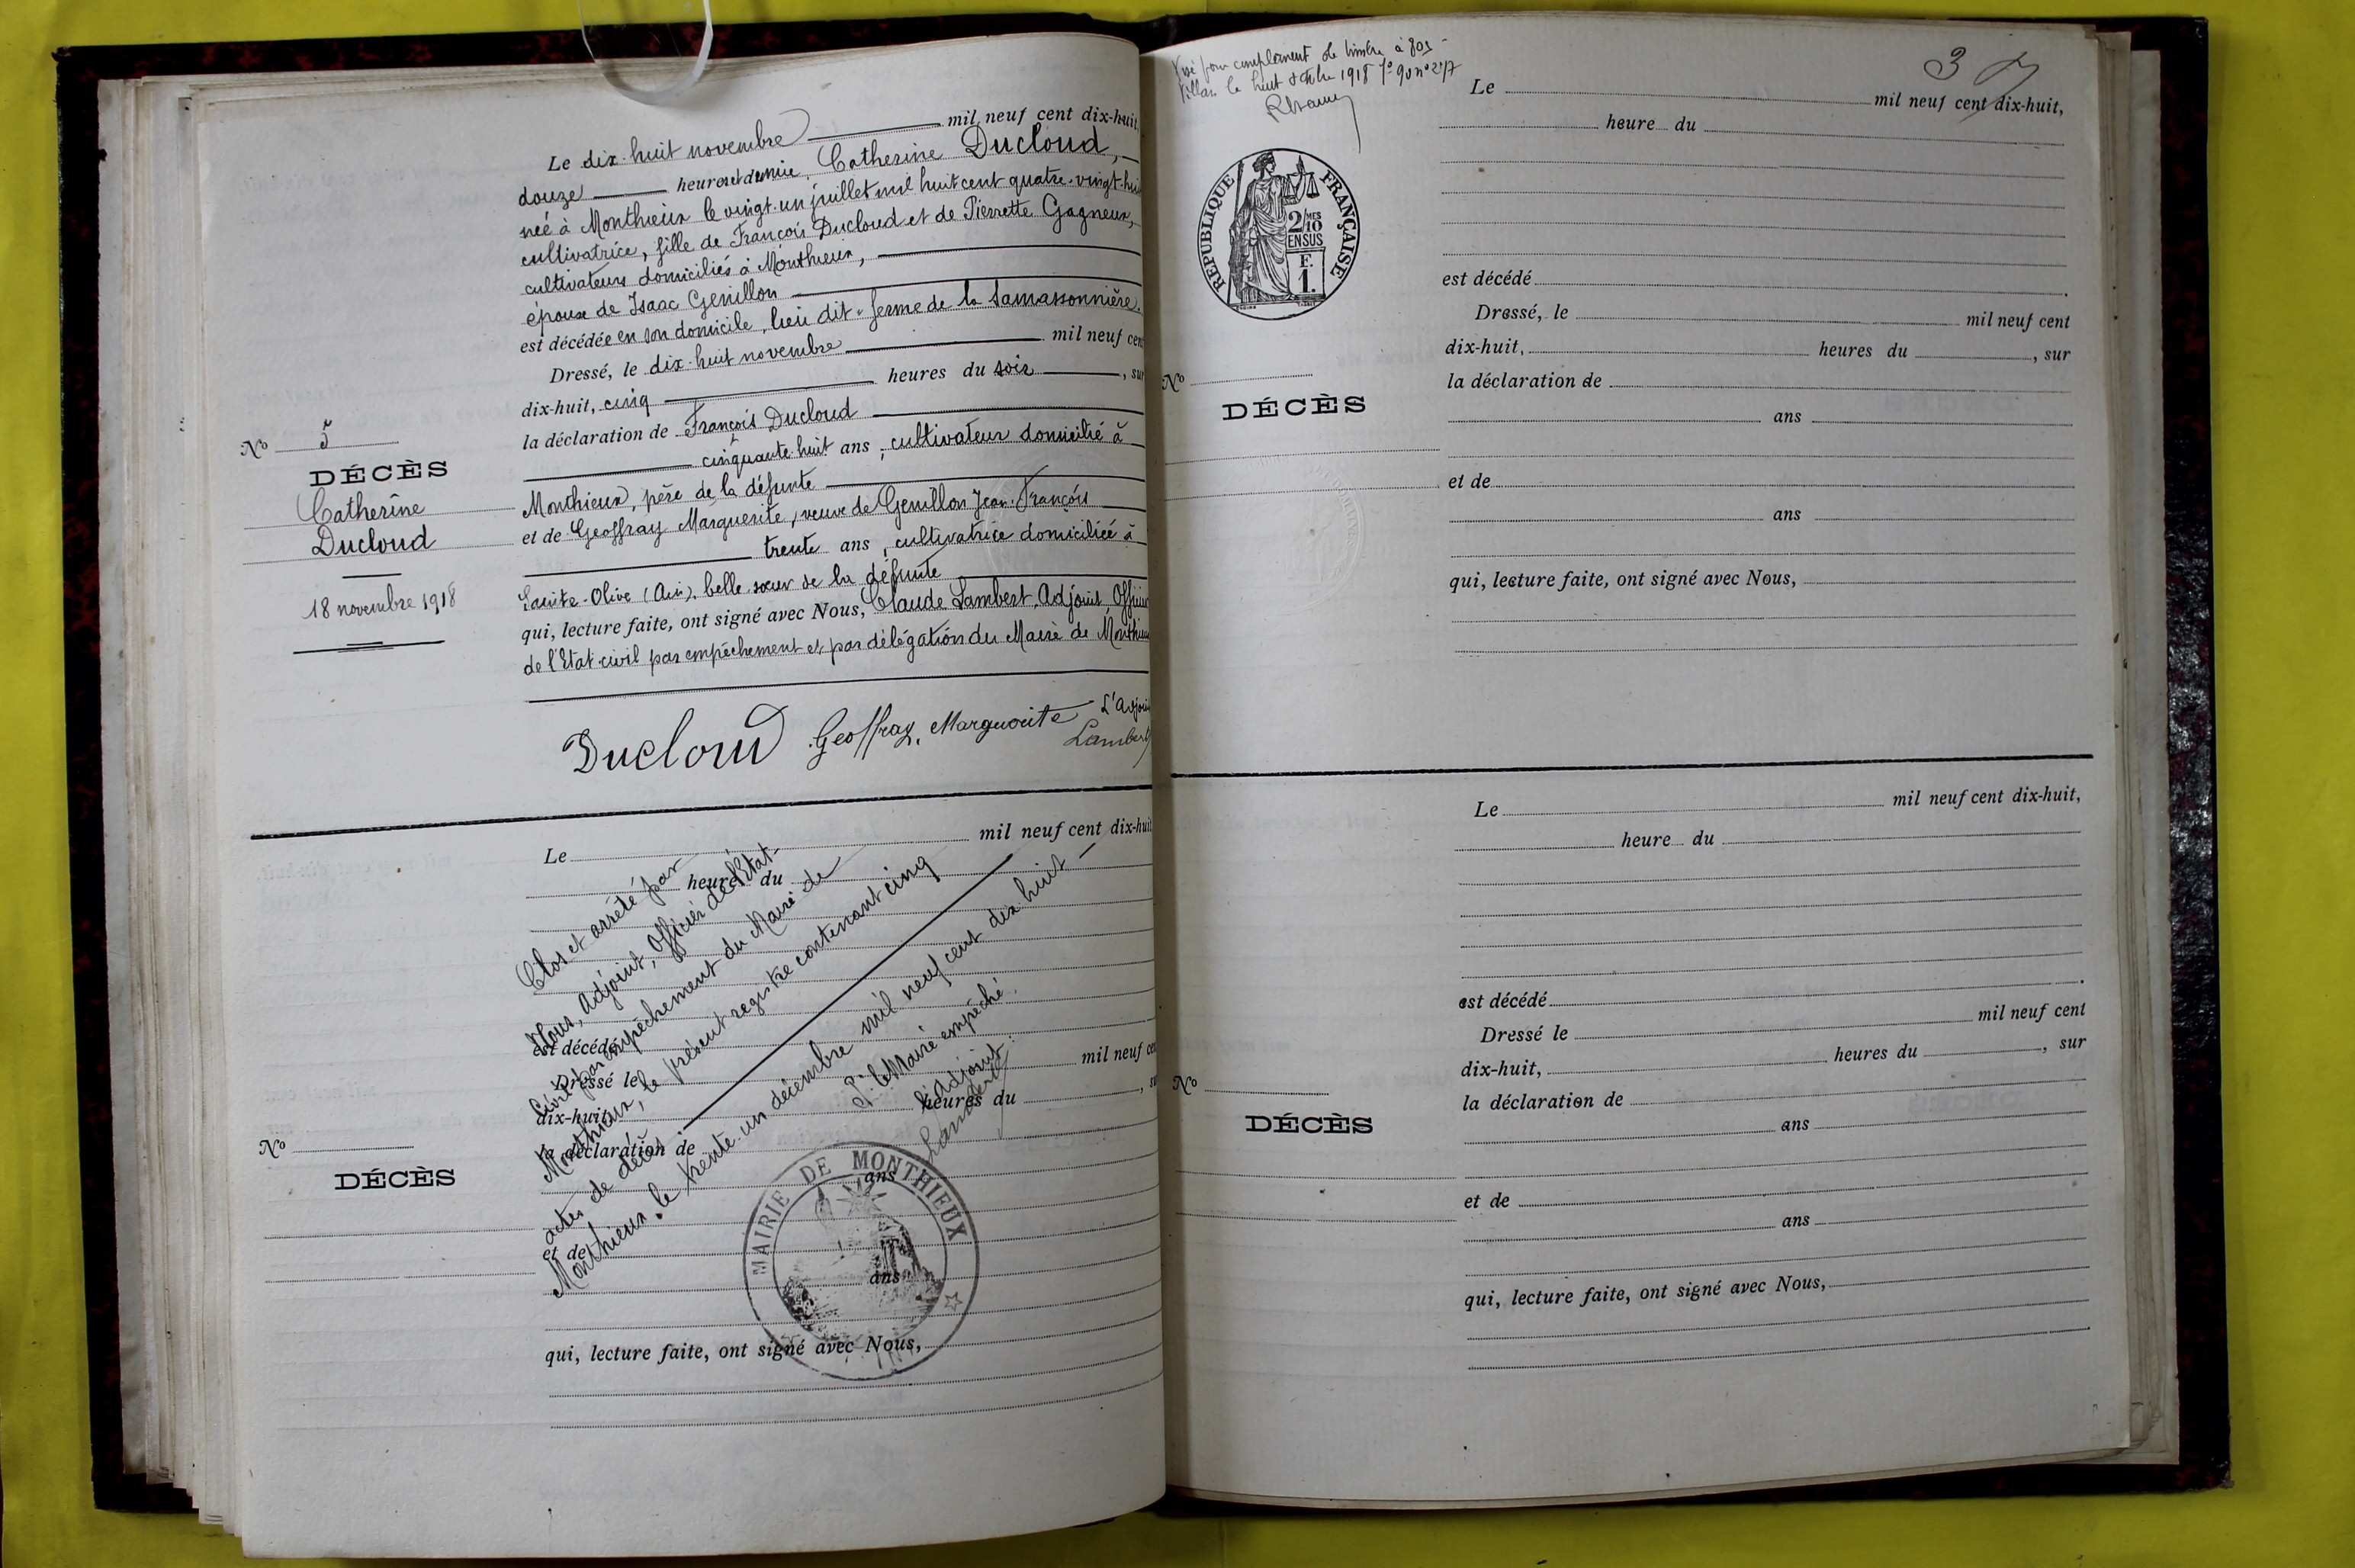 Le dix-huit novembre mil neuf cent dix-huit,
douze heures et demie, Catherine Ducloud,
née à Monthieux le vingt-un juillet mil huit cent quatre-vingt-hui
cultivatrice, fille de François Ducloud et de Pierrette Gagneux,
cultivateurs domiciliés à Monthieux,
épouse de Isaac Genillon
est décédée en son domicile, lieu dit "ferme de la Samassonnière.
Dressé, le dix-huit novembre mil neuf cen
dix-huit, cinq heures du soir, sur
la déclaration de François Ducloud
cinquante-huit ans, cultivateur domicilié à
Monthieux, père de la défunte
et de Geoffray Marguerite, veuve de Genillon Jean-François
trente ans, cultivatrice domiciliée à
Sainte-Olive (Ain), belle-sœur de la défunte
qui, lecture faite, ont signé avec Nous, Claude Lambert, Adjoint, Officier
de l'Etat-civil par empêchement et par délégation du Maire de Monthieux
Ducloud Geoffray, Marguerite L'Adjoin
Lambert
No 5
DÉCÈS
Catherine
Ducloud
18 novembre 1918
Le mil neuf cent dix-huit
heure du
est décédé
Dressé le mil neuf cen
dix-huit, heures du , su
la déclaration de
ans
et de
ans
qui, lecture faite, ont signé avec Nous,
No
DÉCÈS
Clos et arrêté par
Nous, Adjoint, Officier de l'Etat-
Civil par empêchement du Maire de
Monthieux, le présent registre contenant cinq
actes de décès
Monthieux, le trente-un décembre mil neuf cent dix-huit
Pr. le Maire empêché.
L'Adjoint:
Lambert
MAIRIE DE MONTHIEUX
Visé pour complément de timbre à 80
Villars le huit octobre 1918 fo 90 no 217
37
RÉPUBLIQUE FRANÇAISE
2/10 MES
EN SUS
F.
1.
Le mil neuf cent dix-huit,
heure du
est décédé
Dressé, le mil neuf cent
dix-huit, heures du , sur
la déclaration de
ans
et de
ans
qui, lecture faite, ont signé avec Nous,
No
DÉCÈS
Le mil neuf cent dix-huit,
heure du
est décédé
Dressé le mil neuf cent
dix-huit, heures du , sur
la déclaration de
ans
et de
ans
qui, lecture faite, ont signé avec Nous,
No
DÉCÈS